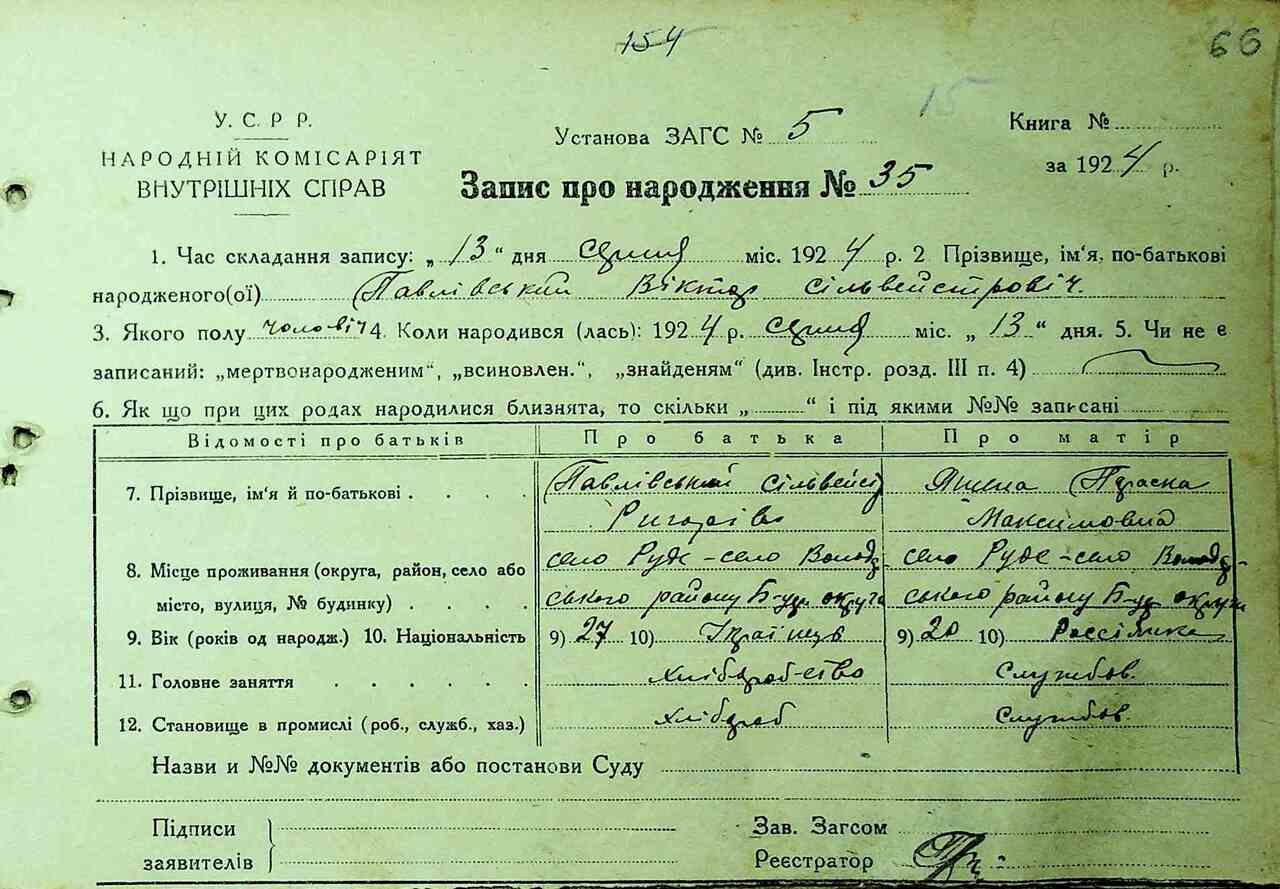 154
66
15
У. С. Р Р.
НАРОДНІЙ КОМІСАРІЯТ
ВНУТРІШНІХ СПРАВ
Установа ЗАГС № 5
Книга №
за 1924 р.
Запис про народження № 35
1. Час складання запису: „ 13 “ дня міс. 1924 р. 2 Прізвище, ім‘я, по-батькові
народженого(ої) Павлівський Віктор Сільвейстрович.
3. Якого полу чоловіч 4. Коли народився (лась): 1924 р. міс. „ 13 “ дня. 5. Чи не є
записаний: „мертвонародженим“, „всиновлен.“, „знайденям“ (див. Інстр. розд. III п. 4)
6. Як що при цих родах народилися близнята, то скільки „ “ і під якими №№ записані
Відомості про батьків Про батька Про матір
7. Прізвище, ім‘я й по-батькові Павлівський Сільвейст
Максимовна
8. Місце проживання (округа, район, село або село Руде-село Волод село Руде-село Волод
місто, вулиця, № будинку) ського району округи ського району округи
9. Вік (років од народж.) 10. Національність 9) 27 10) 9) 20 10)
11. Головне заняття Службов.
12. Становище в промислі (роб., служб., хаз.) хлібороб Службов.
Назви и №№ документів або постанови Суду
Підписи
заявителів
Зав. Загсом
Реєстратор